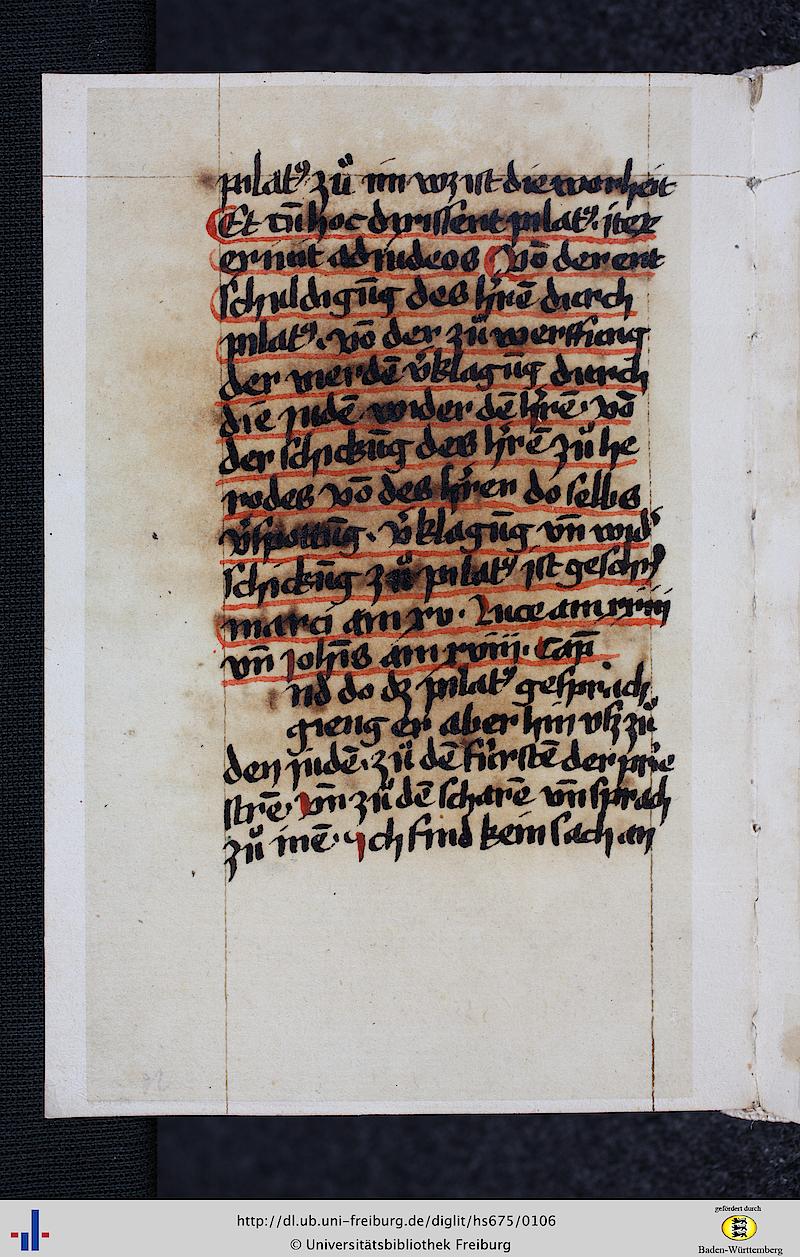 pilatꝰ zuͦ im wz ist die worheit
Et cū hoc dixissent pilatꝰ iter
exiuit ad iudeos Vō der ent
schuldigūg des h̓rē durch
pilatꝰ. vō der zuͦ werffung
der v̓klagūg durch
die judē wider dē h̓rē. vō
der schickūg des h̓rē zuͦ he
rodes vō des h̓ren do selbs
v̓spottūg. v̓klagūg vn̄ wid̓
schickūg zuͦ pilatꝰ ist geschͥ
marci am xv. Luce am xxiii
vn̄ Joh̄is am xviii. Cap̄
nd do dz pilatꝰ gesprach
gieng er aber hin vß zuͦ
den judē. zuͦ dē fúrstē der prie
strē. vn̄ zuͦ dē scharē vn̄ sprach
zuͦ inē. Ich find kein sach an
http://dl.ub.uni-freiburg.de/diglit/hs675/0106
© Universitätsbibliothek Freiburg
gefördert durch
Baden-Württemberg